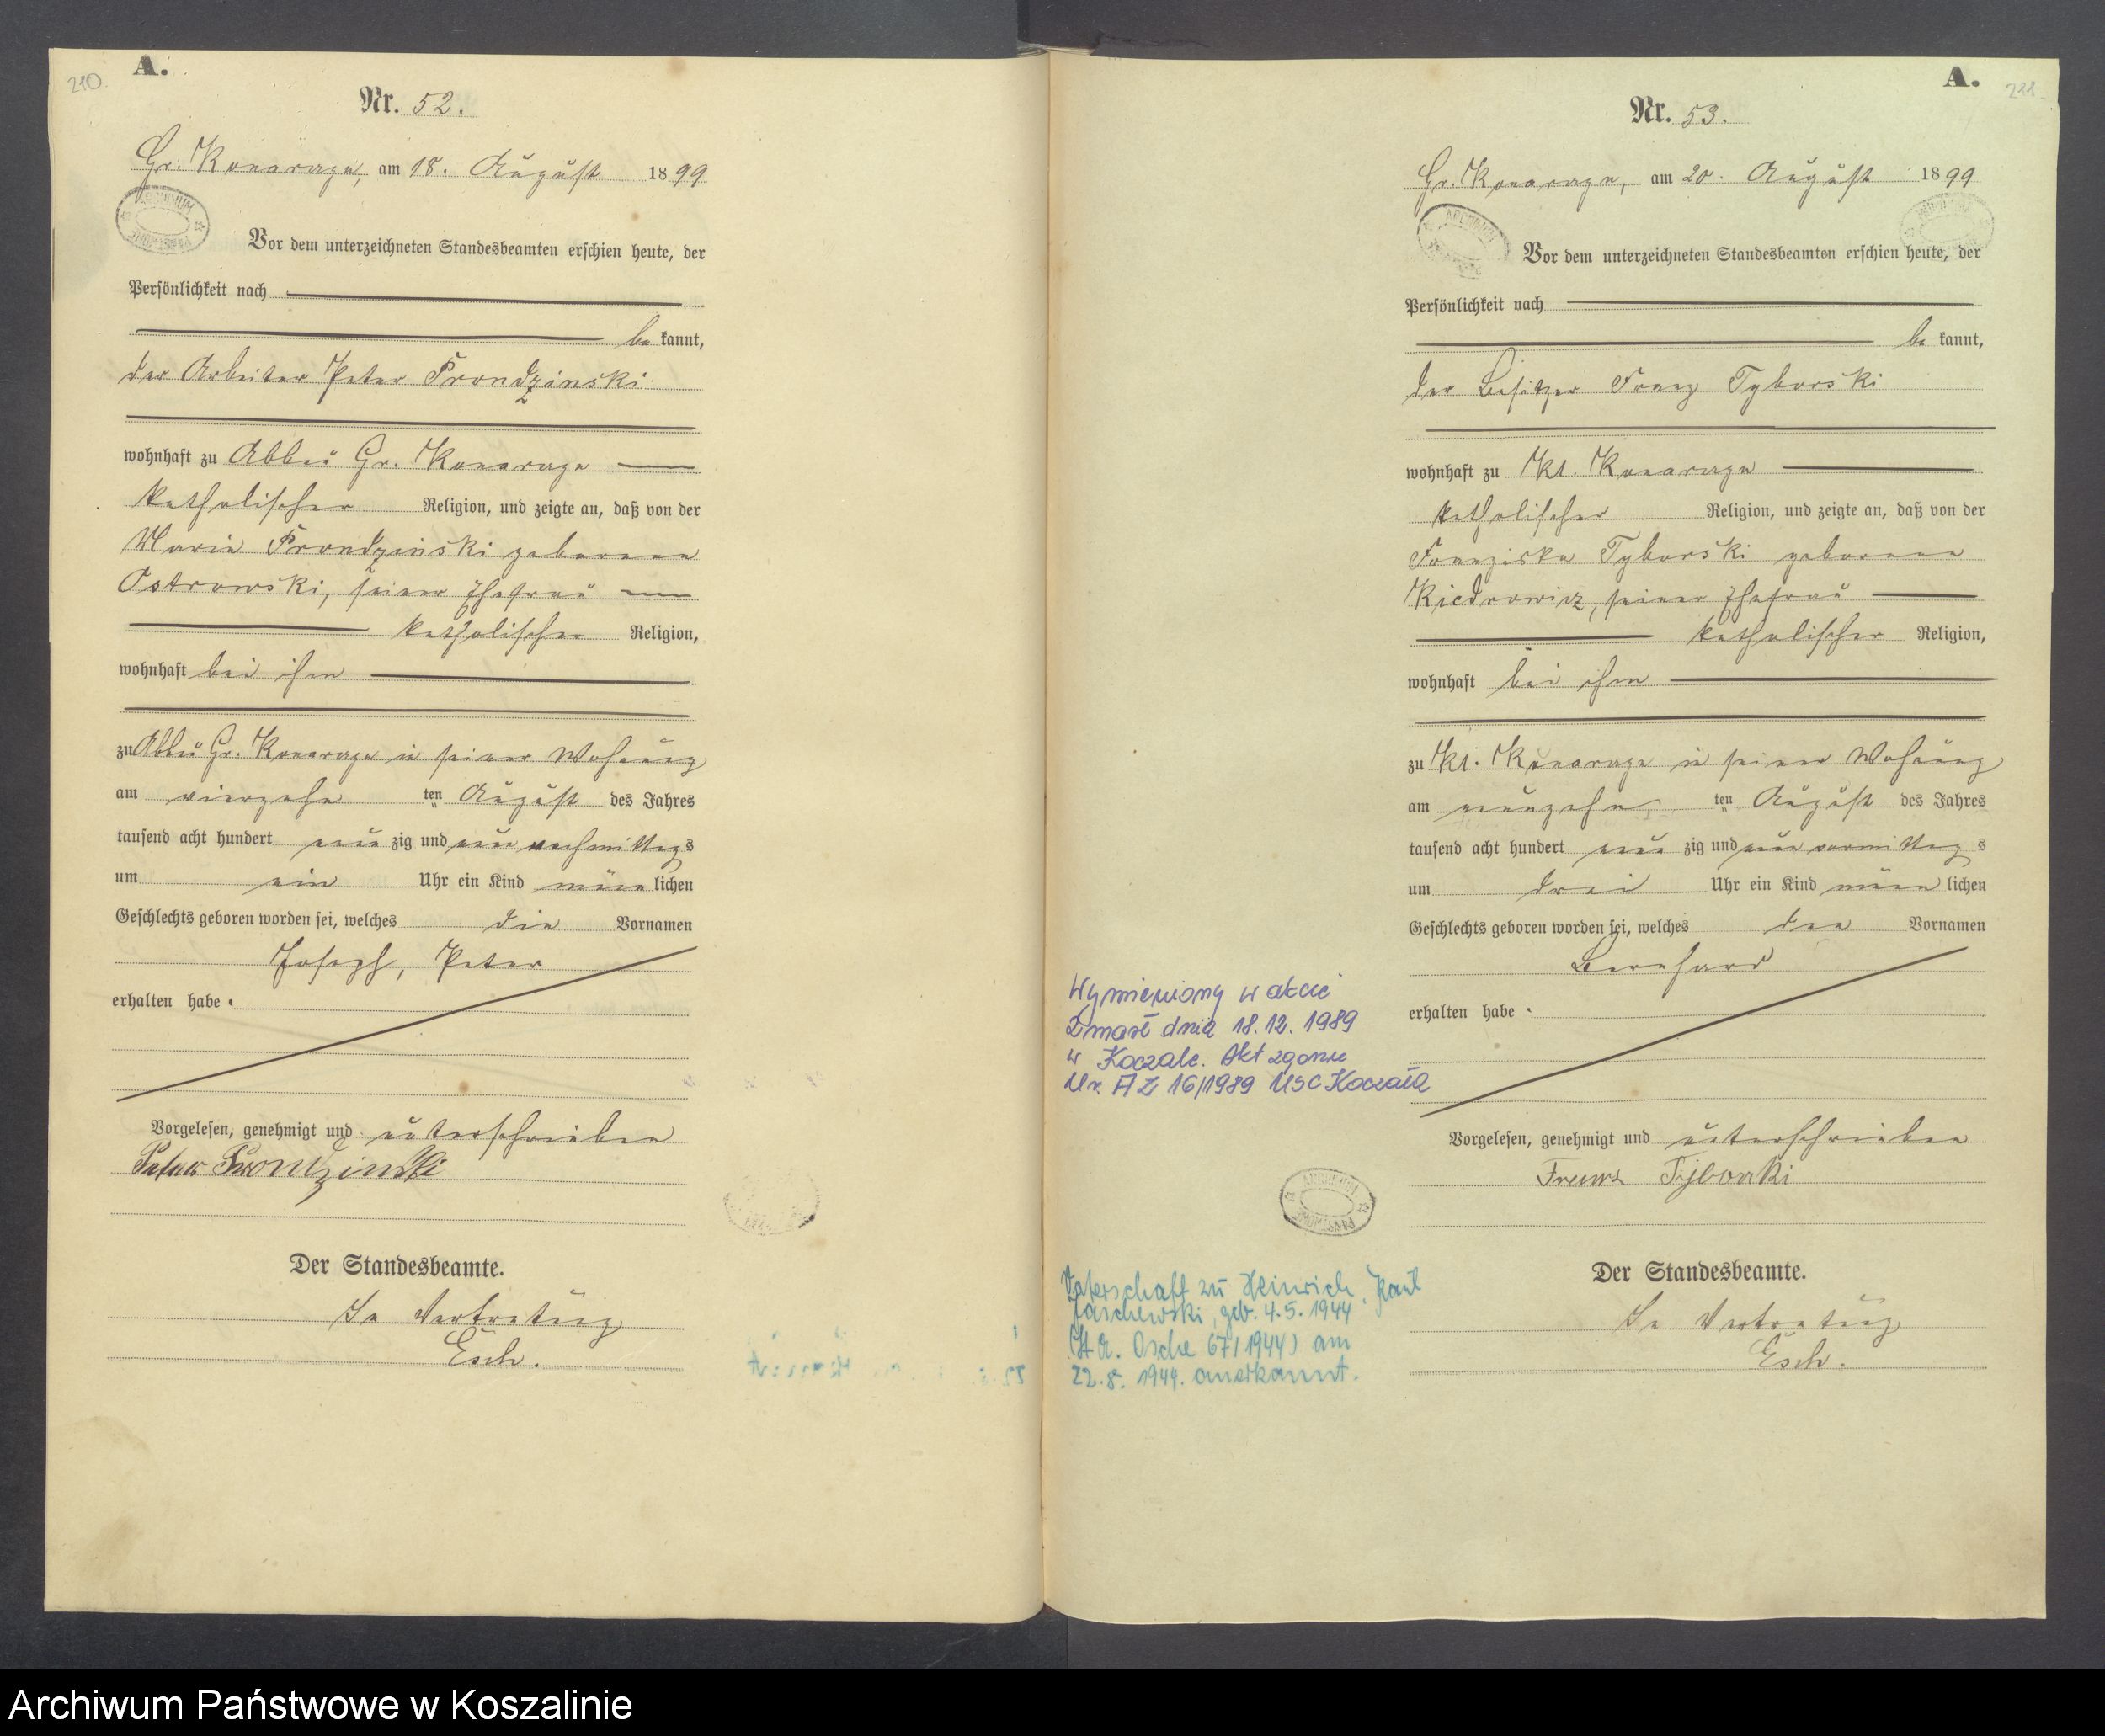 210.
A.
Nr. 52.
Gr. Konarczyn, am 18. August 1899
Vor dem unterzeichneten Standesbeamten erschien heute, der
Persönlichkeit nach
be kannt,
der Arbeiter Peter Prondzinski
wohnhaft zu Abbau Gr. Konarczyn
katholischer Religion, und zeigte an, daß von der
Marie Prondzinski geborenen
Ostrowski, seiner Ehefrau
katholischer Religion,
wohnhaft bei ihm
zu Abbau Gr. Konarczyn in seiner Wohnung
am vierzehn ten August des Jahres
tausend acht hundert neun zig und neun nachmittags
um ein Uhr ein Kind männ lichen
Geschlechts geboren worden sei, welches die Vornamen
Joseph, Peter
erhalten habe.
Vorgelesen, genehmigt und unterschrieben
Peter Prondzinski
Der Standesbeamte.
In Vertretung
Esch.
A.
211
Nr. 53.
Gr. Konarczyn, am 20. August 1899
Vor dem unterzeichneten Standesbeamten erschien heute, der
Persönlichkeit nach
be kannt,
der Besitzer Franz Tyborski
wohnhaft zu Kl. Konarczyn
katholischer Religion, und zeigte an, daß von der
Franziska Tyborski geborenen
Kiedrowicz, seiner Ehefrau
katholischer Religion,
wohnhaft bei ihm
zu Kl. Konarczyn in seiner Wohnung
am neunzehn ten August des Jahres
tausend acht hundert neun zig und neun vormittags
um drei Uhr ein Kind männ lichen
Geschlechts geboren worden sei, welches den Vornamen
Bernhard
erhalten habe.
Vorgelesen, genehmigt und unterschrieben
Franz Tyborski
Der Standesbeamte.
In Vertretung
Esch.
Wymieniony w akcie
zmarł dnia 18.12.1989
w Koczale. Akt zgonu
Nr. AZ 16/1989 USC Koczała
ARCHIWUM
PAŃSTWOWE
Vaterschaft zu Heinrich, Paul
Jaschewski, geb. 4.5.1944
(St.A. Osche 67/1944) am
22.8.1944. anerkannt.
Archiwum Państwowe w Koszalinie